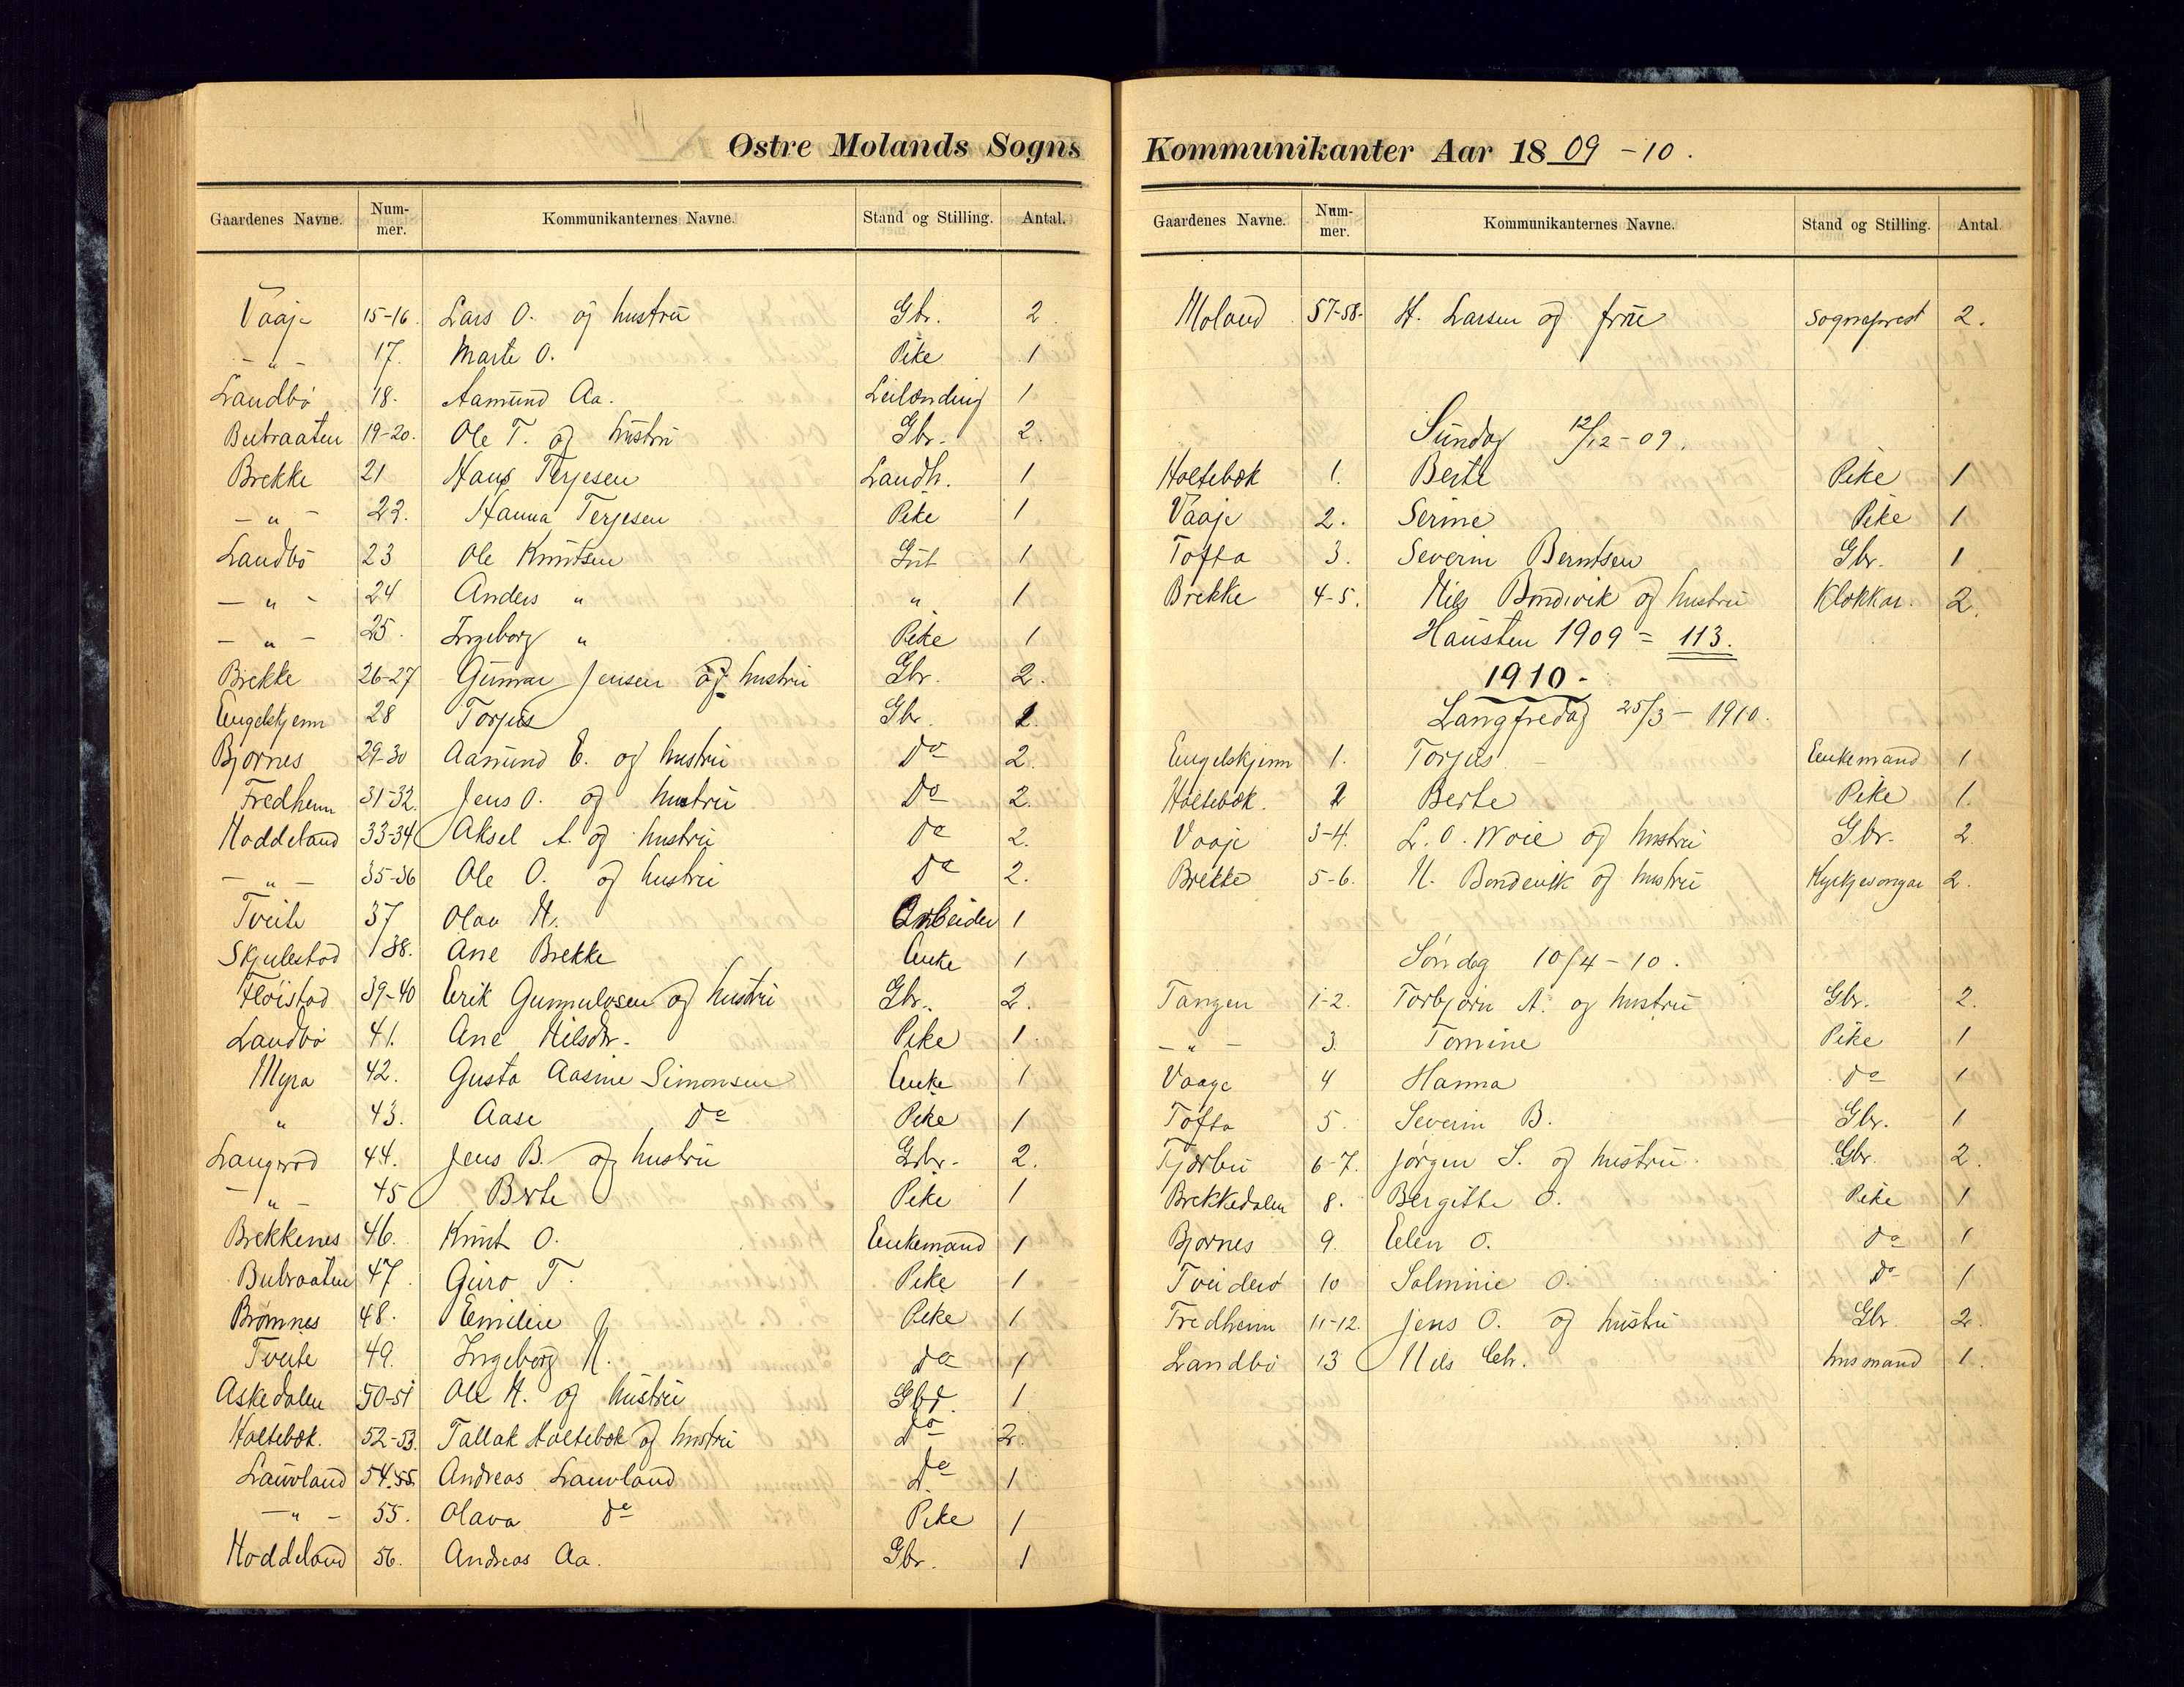 Østre Molands Sogns
Gaardenes Navne. Num-mer. Kommunikanternes Navne. Stand og Stilling. Antal.
Vaaje 15-16. Lars O. og hustru Gbr. 2
-"- 17. Marte O. Pike 1
Landbö 18. Aamund Aa. Leilænding 1
Butraaten 19-20. Ole T. og hustru Gbr. 2.
Brekke 21 Hans Terjesen Landh. 1
-"- 22. Hanna Terjesen Pike 1
Landbö 23 Ole Knutsen Gut 1
-"- 24 Anders " " 1
-"- 25. Ingeborg " Pike 1
Brekke 26-27 Gunnar Jensen og hustru Gbr. 2.
Engelskjenn 28 Torjus Gbr. 1.
Bjornes 29-30 Aamund E. og hustru Do 2.
Fredheim 31-32. Jens O. og hustru Do 2.
Hoddeland 33-34 Aksel A. og hustru Do 2.
-"- 35-36 Ole O. og hustru Do 2.
Tveite 37 Olav H. Arbeider 1
Skjulestad 38. Ane Brekke Enke 1
Flöistad 39-40 Eerik Gunnulvsen og hustru Gbr. 2.
Landbö 41. Ane Nilsdtr. Pike 1
Myra 42. Gusta Aasine Simonsen Enke 1
" 43. Aase Do Pike 1
Langeröd 44. Jens B. og hustru Gbr. 2.
-"- 45 Berte Pike 1
Brekkenes 46. Knut O. Enkemand 1
Butraaten 47. Guro T. Pike 1
Brömnes 48. Emilie Pike 1
Tveite 49. Ingeborg H. Do 1
Askedalen 50-51 Ole H. og hustru Gbr. 1
Holtebæk. 52-53. Tallak Holtebæk og hustru Do 2.
Lauvland 54.55. Andreas Lauvland Do 1
-"- 55. Olava do Pike 1
Hoddeland 56. Andreas Aa. Gbr. 1
Kommunikanter Aar 18 09 -10.
Gaardenes Navne. Num-mer. Kommunikanternes Navne. Stand og Stilling. Antal.
Moland 57-58. H. Larsen og frue Sogneprest 2.
Sundag 12/12-09.
Holtebæk 1. Berte Pike 1
Vaaje 2. Serine Pike 1
Tofta 3. Severin Berntsen Gbr. 1
Brekke 4-5. Nils Bondevik og hustru Klokkar. 2.
Hausten 1909 = 113.
1910.
Langfredag 25/3-1910.
Engelskjenn 1. Torjus Enkemand 1
Holtebæk. 2 Berte Pike 1.
Vaaje 3-4. L. O. Woie og hustru Gbr. 2
Brekke 5-6. N. Bondevik og hustru Kyrkjesongar 2.
Söndag 10/4-10.
Tangen 1-2. Torbjörn A. og hustru Gbr. 2.
-"- 3. Tomine Pike 1
Vaage 4 Hanna Do 1
Tofta 5. Severin B. Gbr. 1
Tjærbu 6-7. Jörgen S. og hustru Gbr. 2.
Brekkedalen 8. Bergitte O. Pike 1
Bjornes 9. Elen O. do 1
Tveiderö 10 Salmine O. Do 1
Fredheim 11-12. Jens O. og hustru Gbr. 2.
Landbö 13 Nils Chr. husmand 1.